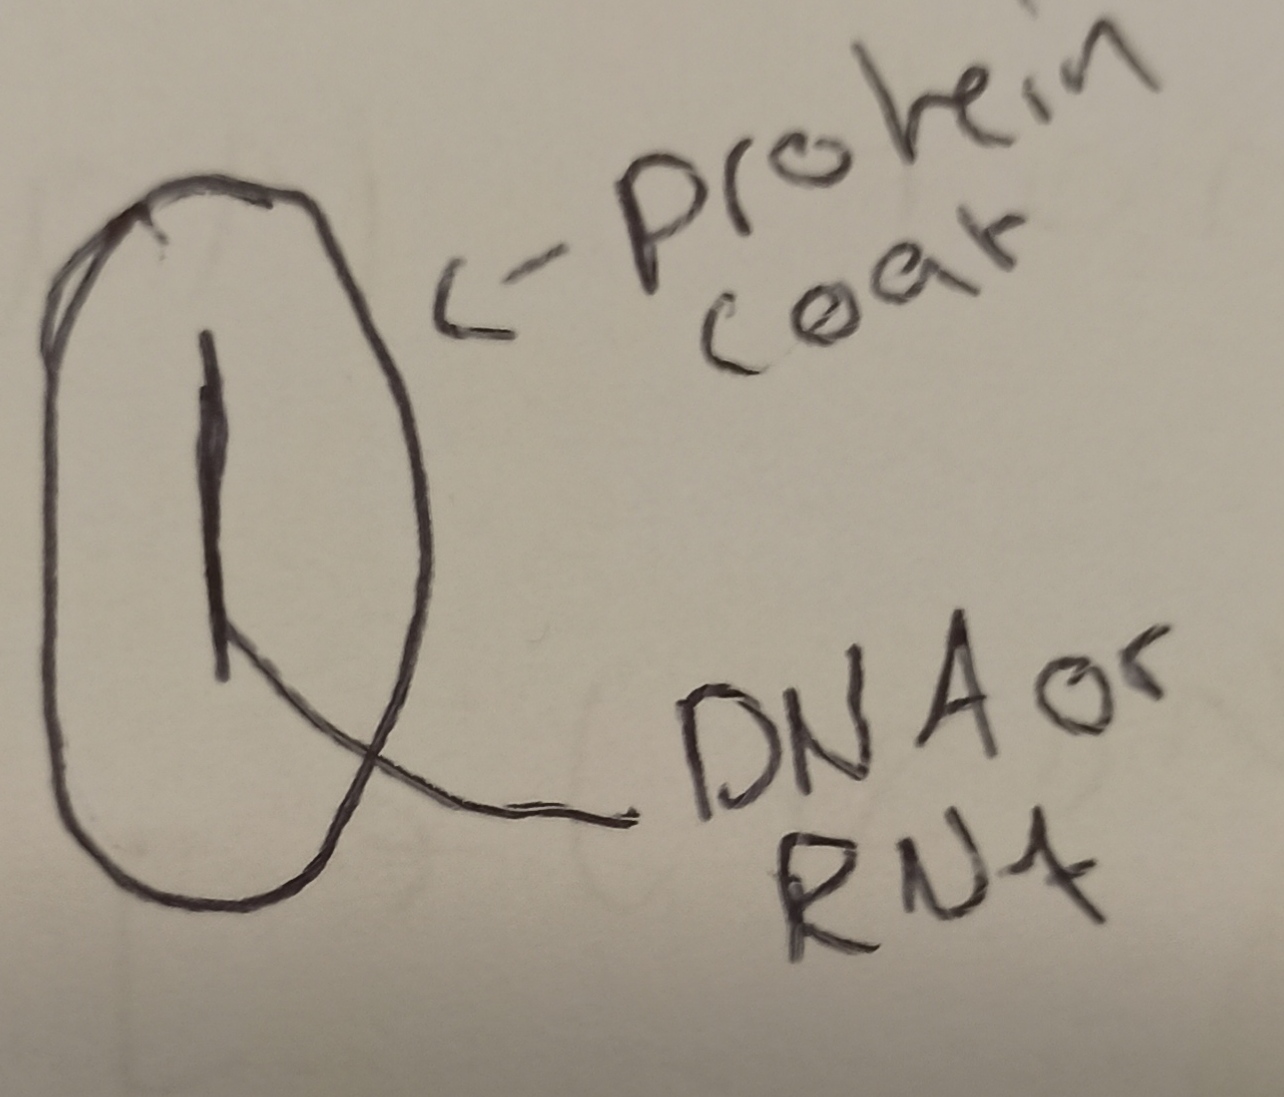 protein
coat
DNA or
RNA